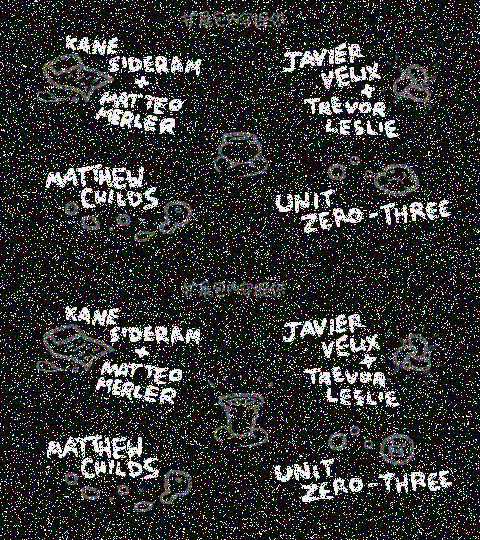 KANE
SIDERAM
+
MATTEO
MERLER
JAVIER
VELIX
+
TREVOR
LESLIE
MATTHEW
CHILDS
UNIT
ZERO-THREE
KANE
SIDERAM
+
MATTEO
MERLER
JAVIER
VELIX
+
TREVOR
LESLIE
MATTHEW
CHILDS
UNIT
ZERO-THREE